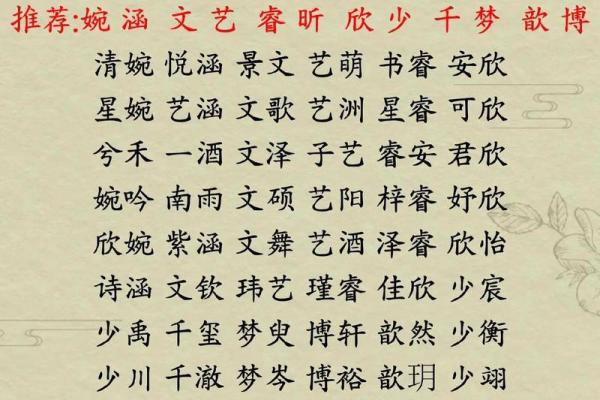 推荐:婉涵 文艺 睿昕 欣少 千梦 歆博
清婉 悦涵 景文 艺萌 书睿 安欣
星婉 艺涵 文歌 艺洲 星睿 可欣
兮禾 一酒 文泽 子艺 睿安 君欣
婉吟 南雨 文硕 艺阳 梓睿 妤欣
欣婉 紫涵 文舞 艺酒 泽睿 欣怡
诗涵 文钦 玮艺 瑾睿 佳欣 少宸
少禹 千玺 梦臾 博轩 歆然 少衡
少川 千澈 梦岑 博裕 歆玥 少翊